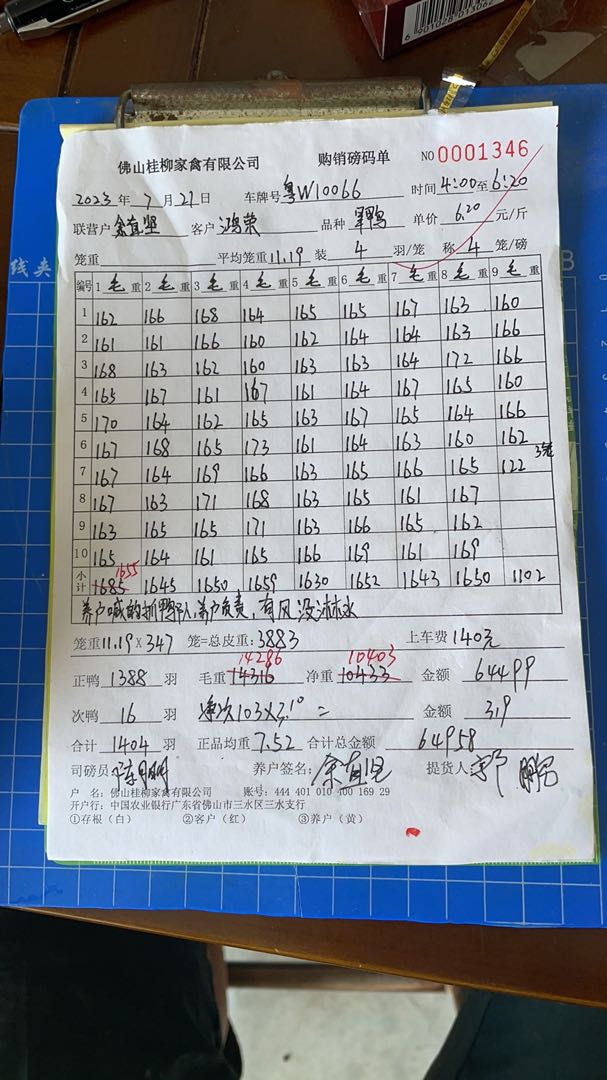 6 901028 013062
佛山桂柳家禽有限公司 购销磅码单 NO 0001346
2023 年 7 月 21 日 车牌号 粤W10066 时间 4:00 至 6:20
联营户 余直坚 客户 鸿荣 品种 单价 6.20 元/斤
笼重 平均笼重 11.19 装 4 羽/笼 称 4 笼/磅
编号 1 毛 重 2 毛 重 3 毛 重 4 毛 重 5 毛 重 6 毛 重 7 毛 重 8 毛 重 9 毛 重
1 162 166 168 164 165 165 167 163 160
2 161 161 166 160 162 164 164 163 166
3 168 163 162 160 163 163 164 172 166
4 165 167 161 167 161 164 167 165 160
5 170 164 162 165 163 167 165 164 166
6 167 168 165 173 161 164 163 160 162
7 167 164 169 166 163 165 166 165 122 3笼
8 167 163 171 168 163 165 161 167
9 163 165 165 171 163 166 165 162
10 165 164 161 165 166 169 161 169
1655
小计 1685 1645 1650 1659 1630 1652 1643 1650 1102
养户喊的抓鸭队,养户负责,有风没淋水
笼重 11.19 × 347 笼=总皮重: 3883 上车费 140元
14286 10403
正鸭 1388 羽 毛重 14316 净重 10433 金额 64499
次鸭 16 羽 净次103×3.10 = 金额 319
合计 1404 羽 正品均重 7.52 合计总金额 64958
司磅员 养户签名: 余直坚 提货人
户 名: 佛山桂柳家禽有限公司 账号: 444 401 010 100 169 29
开户行: 中国农业银行广东省佛山市三水区三水支行
①存根(白) ②客户(红) ③养户(黄)
线夹
B